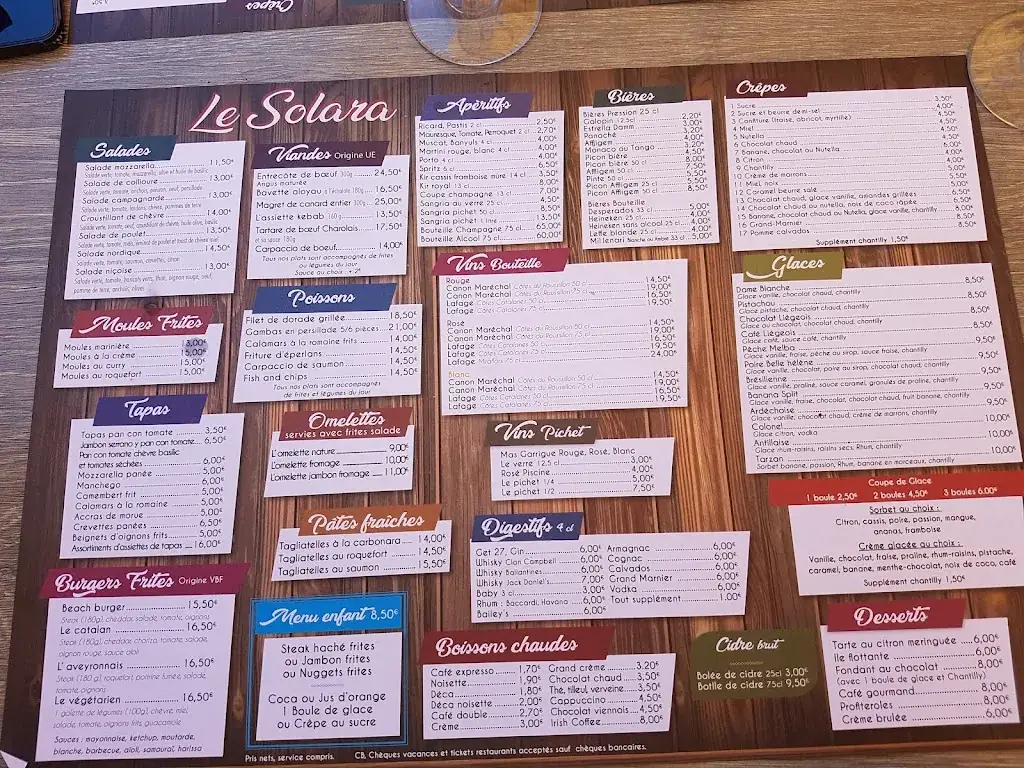 Crêpes
Le Solara
Salades
Salade mozzarella 11,50€
Salade verte, tomate, mozzarella, olive et huile de basilic
Salade de collioure 13,00€
Salade verte, tomate, anchois, poivron, oeuf, persillade
Salade campagnarde 13,00€
Salade verte, tomate, lardons, chèvre, pommes de terre
Croustillant de chèvre 14,00€
Salade de poulet 13,50€
Salade nordique 14,50€
Salade verte, tomate, saumon, crevettes, citron
Salade niçoise 13,00€
Salade verte, tomate, haricots verts, thon, oignon rouge, oeuf,
pomme de terre, anchois, olives
Moules Frites
Moules marinière 13,00€
Moules à la crème 15,00€
Moules au curry 15,00€
Moules au roquefort 15,00€
Tapas
Tapas pan con tomate 3,50€
Jambon serrano y pan con tomate 6,50€
Pan con tomate chèvre basilic
et tomates séchées 6,00€
Mozzarella panée 5,00€
Manchego 6,00€
Camembert frit 5,00€
Calamars à la romaine 5,00€
Accras de morue 5,00€
Crevettes panées 6,50€
Beignets d'oignons frits 5,00€
Assortiments d'assiettes de tapas 16,00€
Burgers Frites Origine VBF
Beach burger 15,50€
Steak (180g), cheddar, salade, tomate, oignons
Le catalan 16,50€
Steak (180g), cheddar, chorizo, tomate, salade,
oignon rouge, sauce aïoli
L'aveyronnais 16,50€
Steak (180 g), roquefort, pomme fumée, salade,
tomate, oignons
Le végétarien 16,50€
1 galette de légumes (100g), chèvre, miel,
salade, tomate, oignons frits, guacamole
Sauces : mayonnaise, ketchup, moutarde,
blanche, barbecue, aïoli, samouraï, harissa
Viandes Origine UE
Entrecôte de boeuf 300g 24,50€
Angus maturée
Bavette aloyau à l'échalote 180g 16,50€
Magret de canard entier 300g 25,00€
L'assiette kebab 160 g 13,50€
Tartare de boeuf Charolais 17,50€
et sa sauce 180g
Carpaccio de boeuf 14,00€
Tous nos plats sont accompagnés de frites
ou légumes du jour
Sauce au choix : +2€
Poissons
Filet de dorade grillée 18,50€
Gambas en persillade 5/6 pièces 21,00€
Calamars à la romaine frits 14,00€
Friture d'éperlans 14,50€
Carpaccio de saumon 14,50€
Fish and chips 14,50€
Tous nos plats sont accompagnés
de frites et légumes du jour
Omelettes
servies avec frites salade
L'omelette nature 9,00€
L'omelette fromage 10,00€
L'omelette jambon fromage 11,00€
Pâtes fraîches
Tagliatelles à la carbonara 14,00€
Tagliatelles au roquefort 14,50€
Tagliatelles au saumon 15,50€
Menu enfant 8,50€
Steak haché frites
ou Jambon frites
ou Nuggets frites
Coca ou Jus d'orange
1 Boule de glace
ou Crêpe au sucre
Apéritifs
Ricard, Pastis 2 cl 2,50€
Mauresque, Tomate, Perroquet 2 cl 2,70€
Muscat, Banyuls 4 cl 4,00€
Martini rouge, blanc 4 cl 4,00€
Porto 4 cl 4,00€
Spritz 6 cl 6,50€
Kir cassis framboise mûre 14 cl 3,50€
Kir royal 13 cl 8,00€
Coupe champagne 13 cl 7,00€
Sangria au verre 25 cl 4,50€
Sangria pichet 50 cl 8,50€
Sangria pichet 1 litre 13,50€
Bouteille Champagne 75 cl 65,00€
Bouteille Alcool 75 cl 60,00€
Bières
Bières Pression 25 cl
Galopin 12.5cl 2,20€
Estrella Damm 3,00€
Panaché 3,20€
Affligem 4,00€
Monaco ou Tango
Picon bière
Picon bière 50 cl
Affligem 50 cl
Pinte 50 cl
Picon Affligem 25 cl
Picon Affligem 50 cl 8,50€
Bières Bouteille
Desperados 33 cl 5,00€
Heineken 25 cl 4,00€
Heineken sans alcool 25 cl 4,00€
Leffe blonde 25 cl 4,00€
Millenari Blanche ou Ambrée 33 cl 5,00€
Vins Bouteille
Rouge
Canon Maréchal Côtes du Roussillon 50 cl 14,50€
Canon Maréchal Côtes du Roussillon 75 cl 19,00€
Lafage Côtes Catalanes 50 cl 16,50€
Lafage Côtes Catalanes 75 cl 19,50€
Rosé
Canon Maréchal Côtes du Roussillon 50 cl 14,50€
Canon Maréchal Côtes du Roussillon 75 cl 19,00€
Lafage Côtes Catalanes 50 cl 16,50€
Lafage Côtes Catalanes 75 cl 19,50€
Lafage Miraflors 75 cl 24,00€
Blanc
Canon Maréchal Côtes du Roussillon 50 cl 14,50€
Canon Maréchal Côtes du Roussillon 75 cl 19,00€
Lafage Côtes Catalanes 50 cl 16,50€
Lafage Côtes Catalanes 75 cl 19,50€
Vins Pichet
Mas Garrigue Rouge, Rosé, Blanc
Le verre 12.5 cl 3,00€
Rosé Piscine 4,00€
Le pichet 1/4 5,00€
Le pichet 1/2 7,50€
Digestifs 4 cl
Get 27, Gin 6,00€
Whisky Clan Campbell 6,00€
Whisky Ballantines 6,00€
Whisky Jack Daniel's 7,00€
Baby 3 cl 3,00€
Rhum : Baccardi, Havana 6,00€
Bailey's 6,00€
Armagnac 6,00€
Cognac 6,00€
Calvados 6,00€
Grand Marnier 6,00€
Vodka 6,00€
Tout supplément 1,00€
Boissons chaudes
Café expresso 1,70€
Noisette 1,90€
Déca 1,80€
Déca noisette 2,00€
Café double 2,70€
Crème 3,00€
Grand crème 3,20€
Chocolat chaud 3,50€
Thé, tilleul, verveine 3,50€
Cappuccino 4,50€
Chocolat viennois 4,50€
Irish Coffee 8,00€
Crêpes
1 Sucre 3,50€
2 Sucre et beurre demi-sel 4,00€
3 Confiture (fraise, abricot, myrtille) 4,50€
4 Miel 4,50€
5 Nutella 4,50€
6 Chocolat chaud
7 Banane, chocolat ou Nutella
8 Citron
9 Chantilly
10 Crème de marrons
11 Miel, noix
12 Caramel beurre salé
13 Chocolat chaud, glace vanille, amandes grillées
14 Chocolat chaud ou nutella, noix de coco râpée
15 Banane, chocolat chaud ou Nutella, glace vanille, chantilly 8,00€
16 Grand-Marnier 8,00€
17 Pomme calvados 8,50€
Supplément chantilly 1,50€
Glaces
Dame Blanche 8,50€
Glace vanille, chocolat chaud, chantilly
Pistachou 8,50€
Glace pistache, chocolat chaud, chantilly
Chocolat Liégeois 8,50€
Glace au chocolat, chocolat chaud, chantilly
Café Liégeois 8,50€
Glace café, sauce café, chantilly
Pêche Melba 9,50€
Glace vanille, fraise, pêche au sirop, sauce fraise, chantilly
Poire Belle hélène 9,50€
Glace vanille, chocolat, poire au sirop, chocolat chaud, chantilly
Brésilienne 9,50€
Glace vanille, praliné, sauce caramel, granules de praline, chantilly
Banana Split 9,50€
Glace vanille, fraise, chocolat, chocolat chaud, fruit banane, chantilly
Ardéchoise 9,50€
Glace vanille, chocolat chaud, crème de marrons, chantilly
Colonel 10,00€
Glace citron, vodka
Antillaise 10,00€
Glace rhum-raisins, raisins secs, Rhum, chantilly
Tarzan 10,00€
Sorbet banane, passion, Rhum, banane en morceaux, chantilly
Coupe de Glace
1 boule 2,50€ 2 boules 4,50€ 3 boules 6,00€
Sorbet au choix :
Citron, cassis, poire, passion, mangue,
ananas, framboise
Crème glacée au choix :
Vanille, chocolat, fraise, praline, rhum-raisins, pistache,
caramel, banane, menthe-chocolat, noix de coco, café
Supplément chantilly 1,50€
Cidre brut
Bolée de cidre 25cl 3,00€
Botlle de cidre 75cl 9,50€
Desserts
Tarte au citron meringuée 6,00€
Ile flottante 6,00€
Fondant au chocolat 8,00€
(avec 1 boule de glace et Chantilly)
Café gourmand 8,00€
Profiteroles 8,00€
Crème brulée 6,00€
Prix nets, service compris. CB, Chèques vacances et tickets restaurants acceptés sauf chèques bancaires.